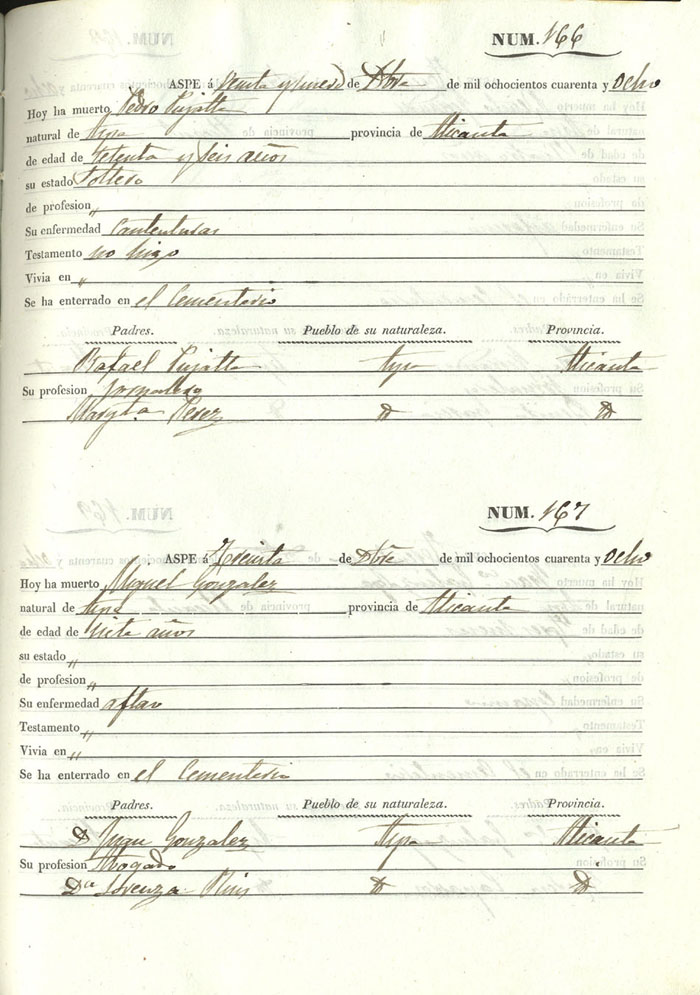 NUM. 166
ASPE á Veinta y nueve de Dbre de mil ochocientos cuarenta y Ocho
Hoy ha muerto Pedro Pujalte
natural de Aspe provincia de Alicante
de edad de Setenta y Seis años
su estado Soltero
de profesion „
Su enfermedad
Testamento no hizo
Vivia en „
Se ha enterrado en el Cementerio
Padres. Pueblo de su naturaleza. Provincia.
Rafael Pujalte Aspe Alicante
Su profesion Jornalero
Perez D D
NUM. 167
ASPE á Treinta de Dbre de mil ochocientos cuarenta y Ocho
Hoy ha muerto Miguel Gonzalez
natural de Aspe provincia de Alicante
de edad de Siete años
su estado „
de profesion „
Su enfermedad aftas
Testamento „
Vivia en „
Se ha enterrado en el Cementerio
Padres. Pueblo de su naturaleza. Provincia.
D Juan Gonzalez Aspe Alicante
Su profesion Abogado
Da Lorenza Ruis D D